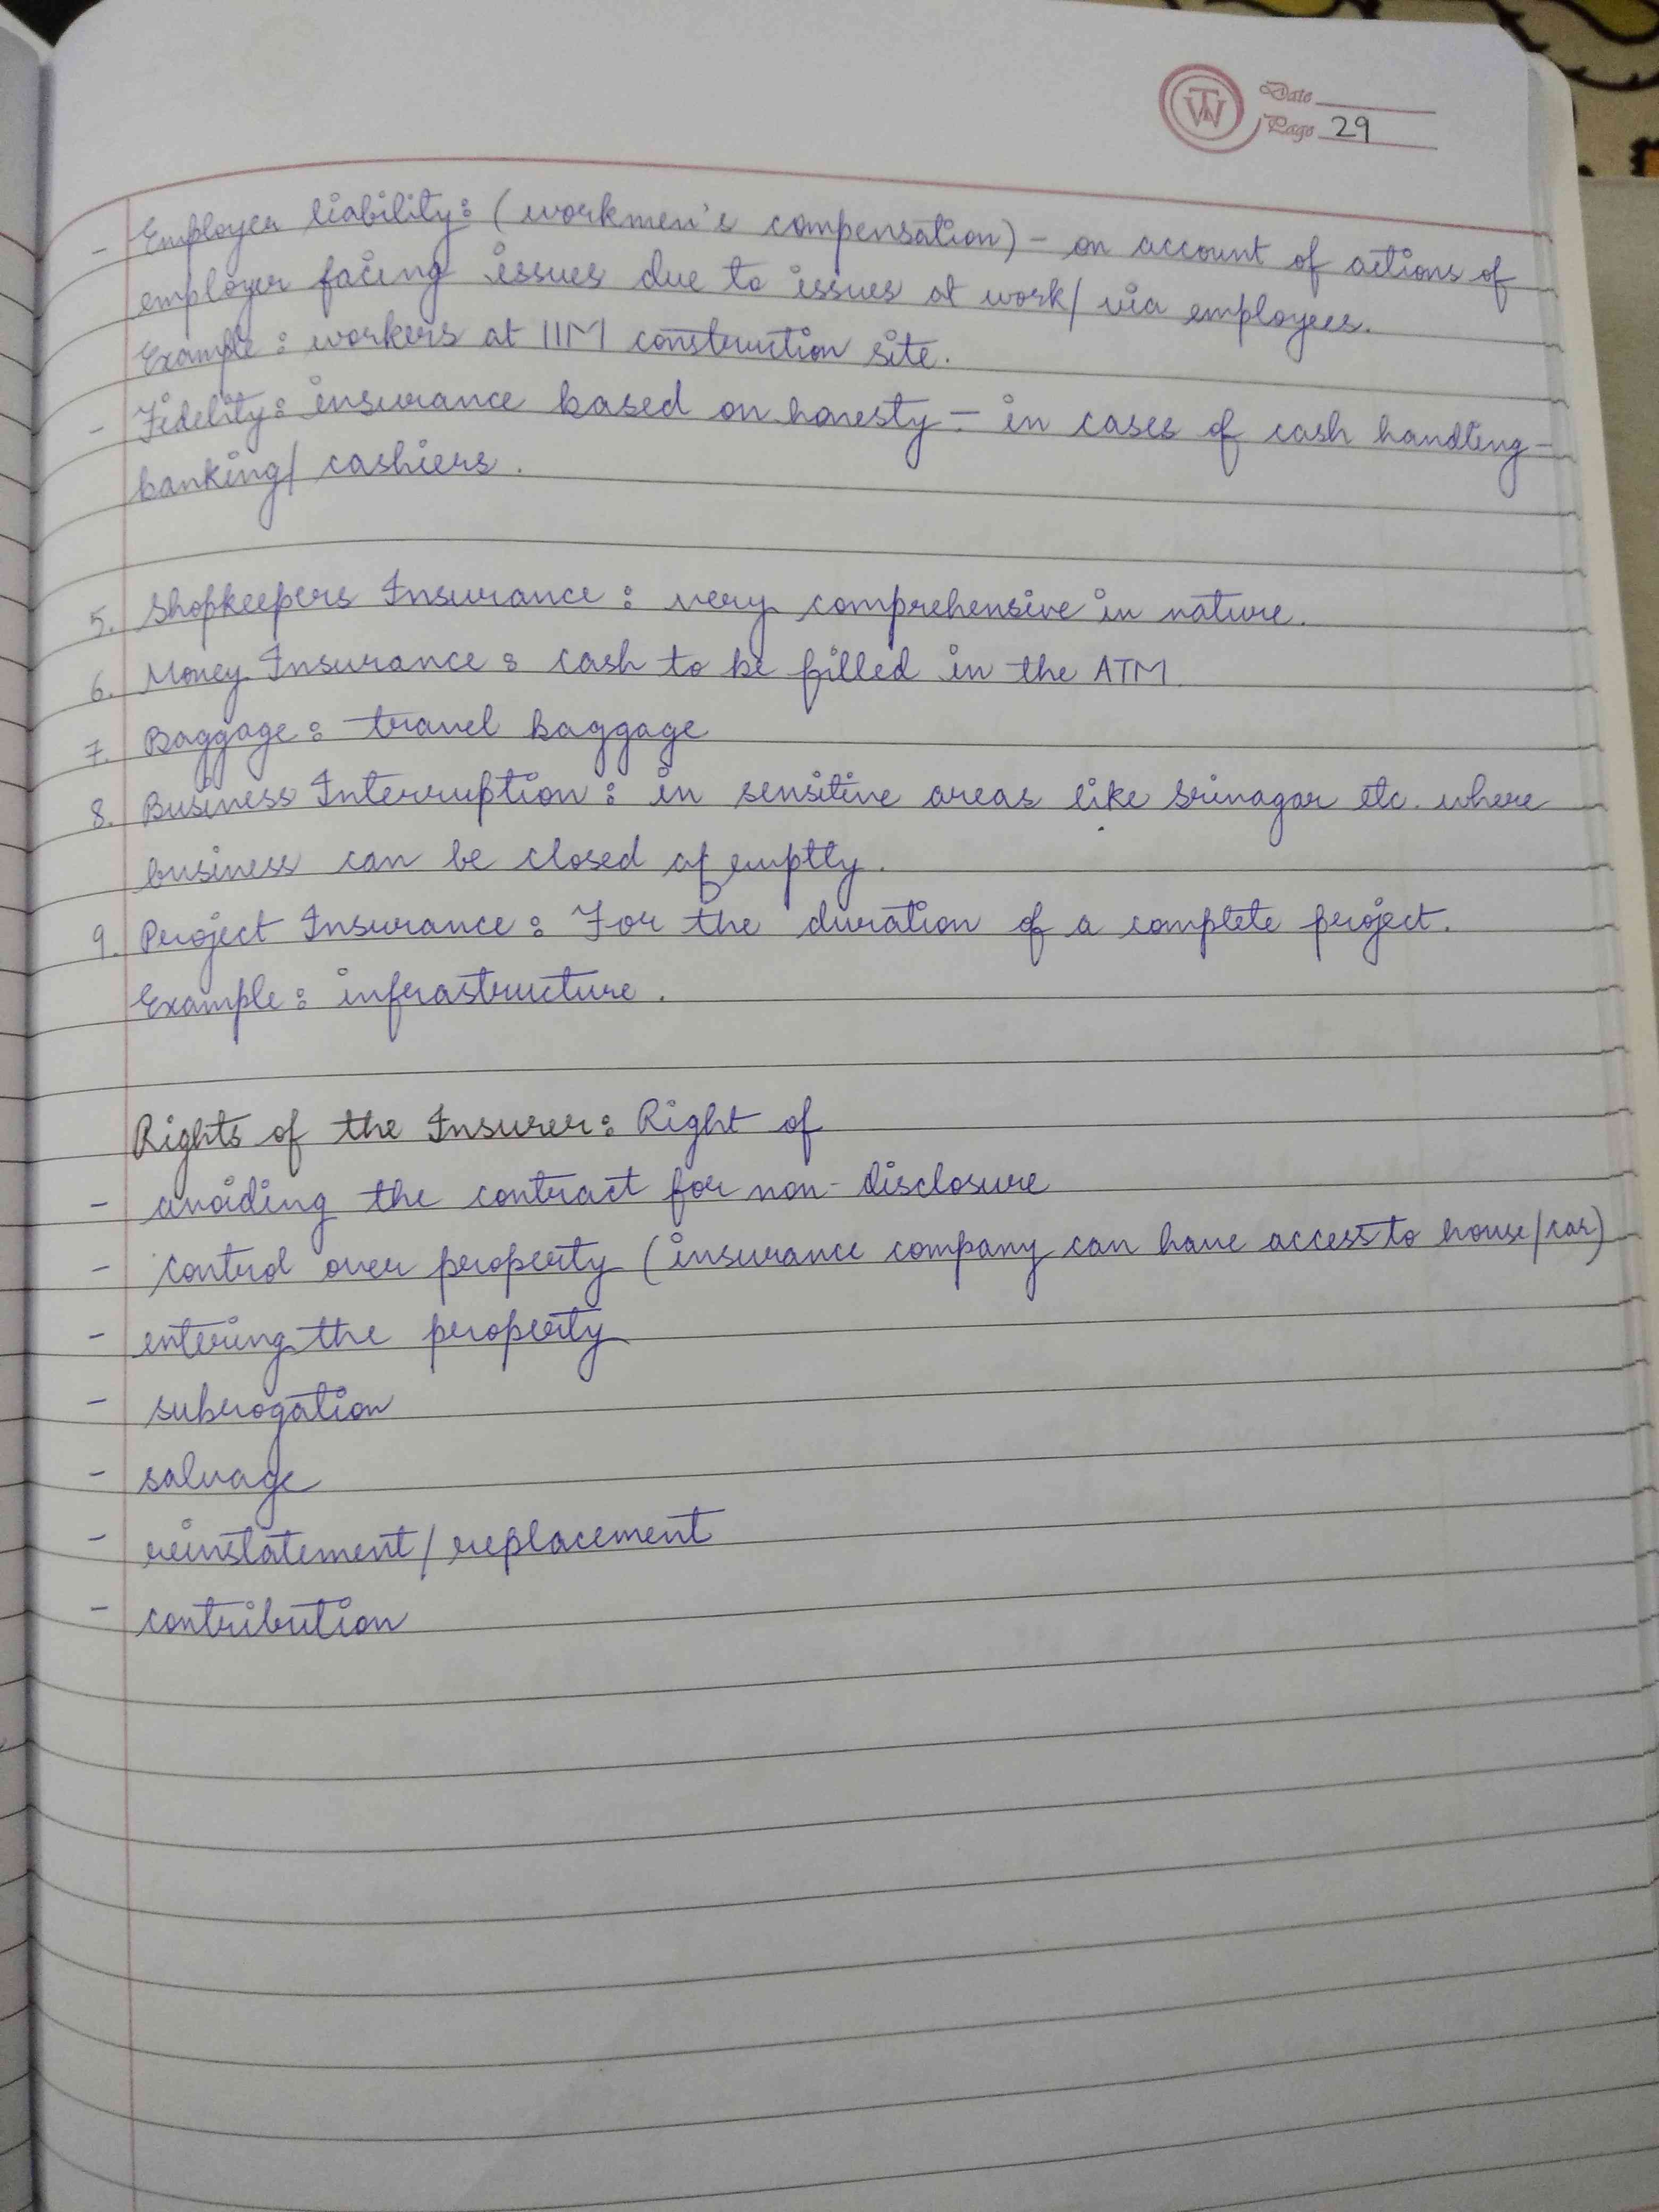 TW
Date
Page 29
- Employer liability: (workmen's compensation) - on account of actions of
employer facing issues due to issues at work/ via employees.
Example: workers at IIM construction site.
- Fidelity: insurance based on honesty - in cases of cash handling -
banking/ cashiers.
5. Shopkeepers Insurance: very comprehensive in nature.
6. Money Insurance: cash to be filled in the ATM.
7. Baggage: travel baggage
8. Business Interruption: in sensitive areas like Srinagar etc. where
business can be closed
9. Project Insurance: For the duration of a complete project.
Example: infrastructure.
Rights of the Insurer: Right of
- avoiding the contract for non-disclosure
- control over property (insurance company can have access to house/car)
- entering the property
- subrogation
- salvage
- reinstatement/ replacement
- contribution